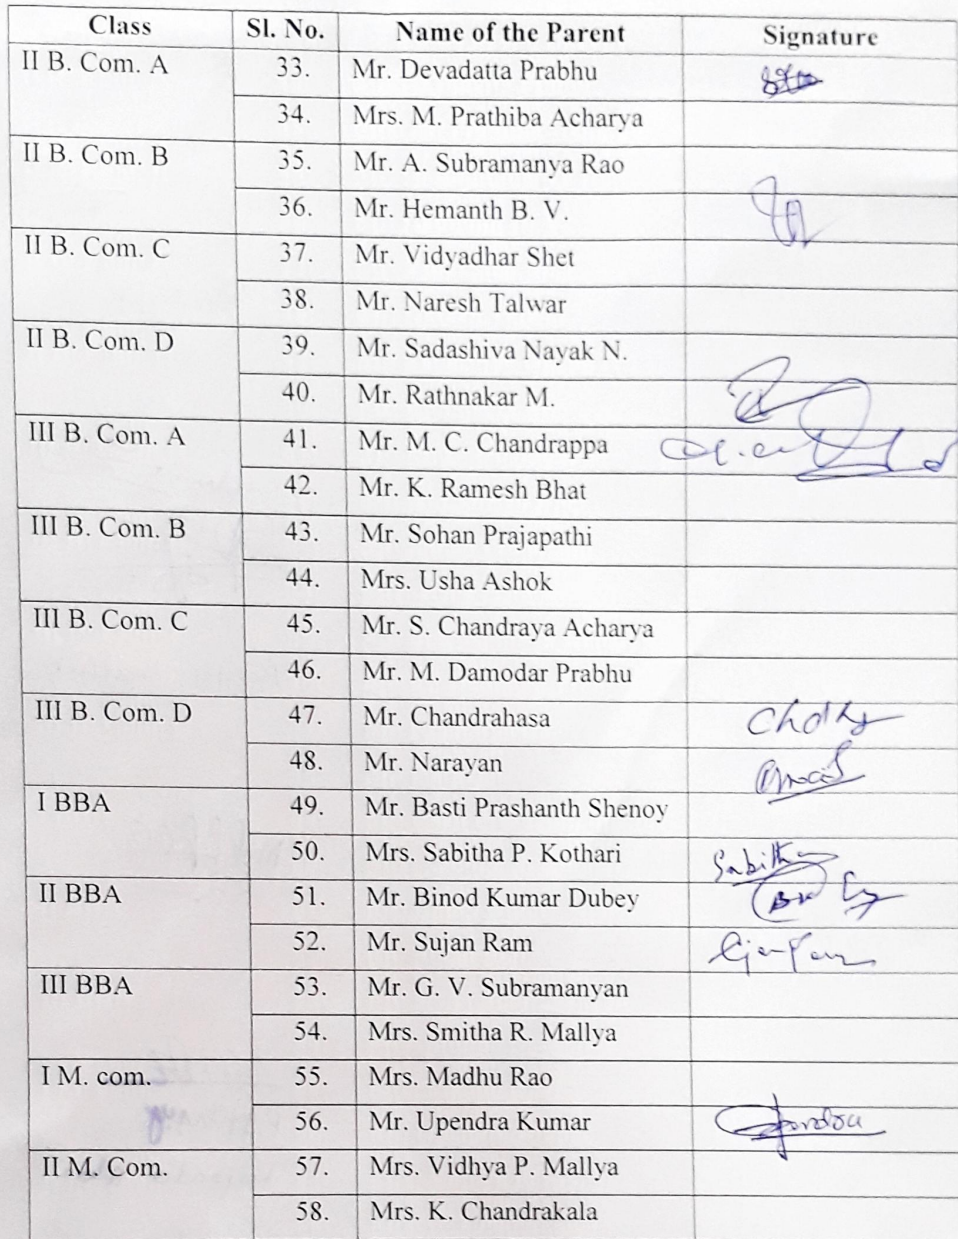 Class Sl. No. Name of the Parent Signature
II B. Com. A 33. Mr. Devadatta Prabhu
34. Mrs. M. Prathiba Acharya
II B. Com. B 35. Mr. A. Subramanya Rao
36. Mr. Hemanth B. V.
II B. Com. C 37. Mr. Vidyadhar Shet
38. Mr. Naresh Talwar
II B. Com. D 39. Mr. Sadashiva Nayak N.
40. Mr. Rathnakar M.
III B. Com. A 41. Mr. M. C. Chandrappa
42. Mr. K. Ramesh Bhat
III B. Com. B 43. Mr. Sohan Prajapathi
44. Mrs. Usha Ashok
III B. Com. C 45. Mr. S. Chandraya Acharya
46. Mr. M. Damodar Prabhu
III B. Com. D 47. Mr. Chandrahasa
48. Mr. Narayan
I BBA 49. Mr. Basti Prashanth Shenoy
50. Mrs. Sabitha P. Kothari Sabitha
II BBA 51. Mr. Binod Kumar Dubey
52. Mr. Sujan Ram
III BBA 53. Mr. G. V. Subramanyan
54. Mrs. Smitha R. Mallya
I M. com. 55. Mrs. Madhu Rao
56. Mr. Upendra Kumar
II M. Com. 57. Mrs. Vidhya P. Mallya
58. Mrs. K. Chandrakala